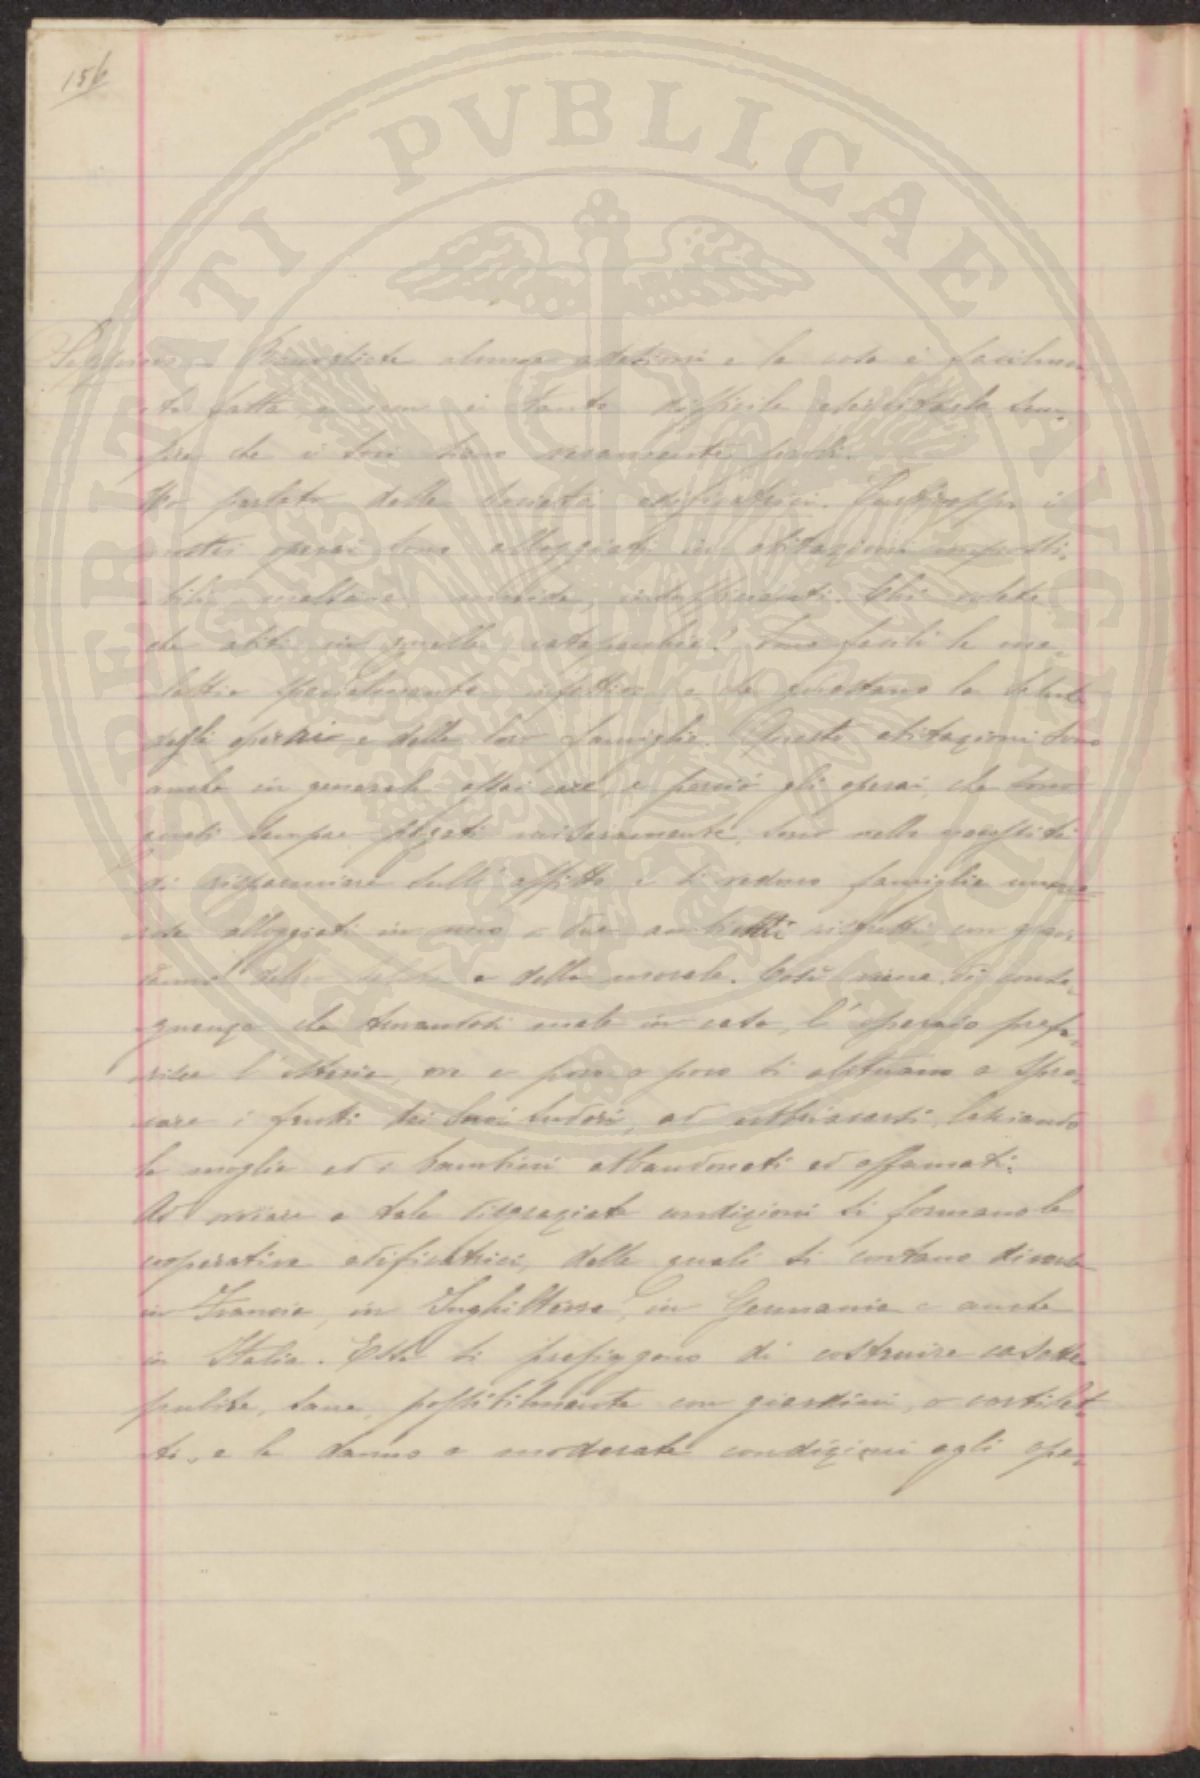 156
Raccogliete alcune adesioni e la cosa è facilmen-
te fatta, e non è tanto difficile eseguirla sem-
pre che i soci siano veramente
Ho parlato delle Società edificatrici. Purtroppo i
nostri operai sono alloggiati in abitazioni impossi-
bili, umide, insufficienti. Chi volete
che abiti in quelle catapecchie? Sono facili le ma-
lattie specialmente infettive e che guastano la salute
degli operai e delle loro famiglie. Queste abitazioni sono
anche in generale assai care, e perciò gli operai, che sono
quasi sempre pagati miseramente, sono nella necessità
di risparmiare sull'affitto e si vedono famiglie nume-
rose alloggiati in uno o due ambienti ristretti, con gran
danno della salute e della morale. Così viene di conse-
guenza che trovandosi male in casa, l'operaio prefe-
risce l'osteria, ove a poco a poco si abituano a spre-
care i frutti dei suoi sudori, ad ubbriacarsi, lasciando
la moglie ed i bambini abbandonati ed affamati.
Ad ovviare a tale disgraziate condizioni si formano le
cooperative edificatrici, delle quali si contano diverse
in Francia, in Inghilterra, in Germania e anche
in Italia. Esse si prefiggono di costruire casette
pulite, sane, possibilmente con giardini, o cortilet-
ti, e le danno a moderate condizioni agli ope-
PROSPERITATI PVBLICAE AVGENDAE